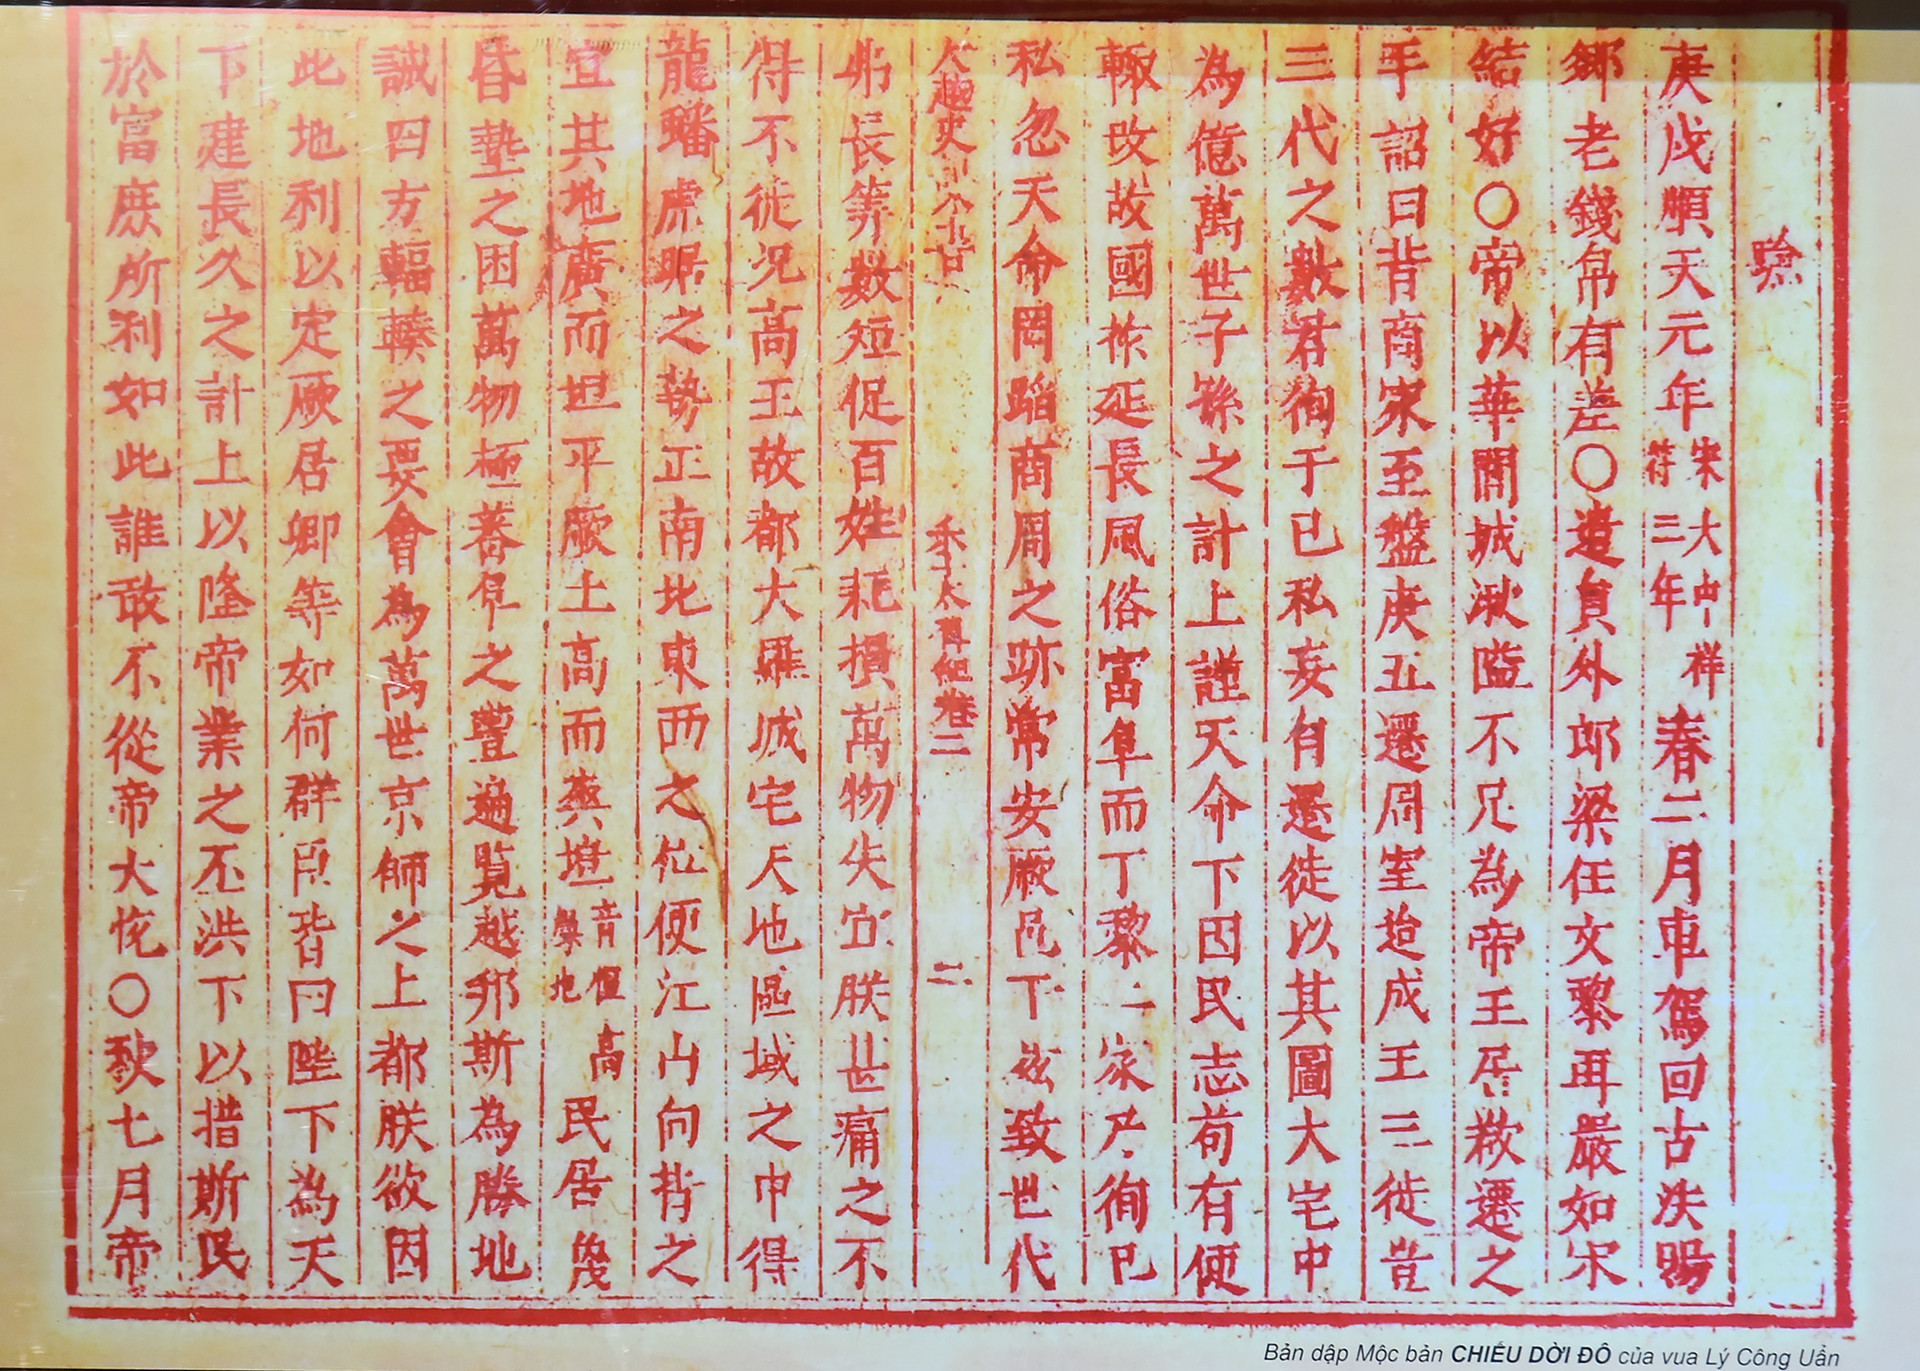 庚戌順天元年宋大中祥符三年春二月車駕回古法賜
鄉老錢帛有差〇遣員外郎梁任文黎再嚴如宋
結好〇帝以華閭城湫隘不足為帝王居欲遷之
手詔曰昔商家至盤庚五遷周室迨成王三徙豈
三代之數君徇于己私妄自遷徙以其圖大宅中
為億萬世子孫之計上謹天命下因民志苟有便
輒改故國祚延長風俗富阜而丁黎二家乃徇己
私忽天命罔蹈商周之跡常安厥邑于茲致世代
大越史記本紀
卷二
二
弗長筭數短促百姓耗損萬物失宜朕甚痛之不
得不徙況高王故都大羅城宅天地區域之中得
龍蟠虎踞之勢正南北東西之位便江山向背之
宜其地廣而坦平厥土高而爽塏音愷高燥地民居蔑
昏墊之困萬物極蕃阜之豐遍覽越邦斯為勝地
誠四方輻輳之要會為萬世京師之上都朕欲因
此地利以定厥居卿等如何群臣皆曰陛下為天
下建長久之計上以隆帝業之丕洪下以措斯民
於富庶所利如此誰敢不從帝大悅〇秋七月帝
Bản dập Mộc bản CHIẾU DỜI ĐÔ của vua Lý Công Uẩn